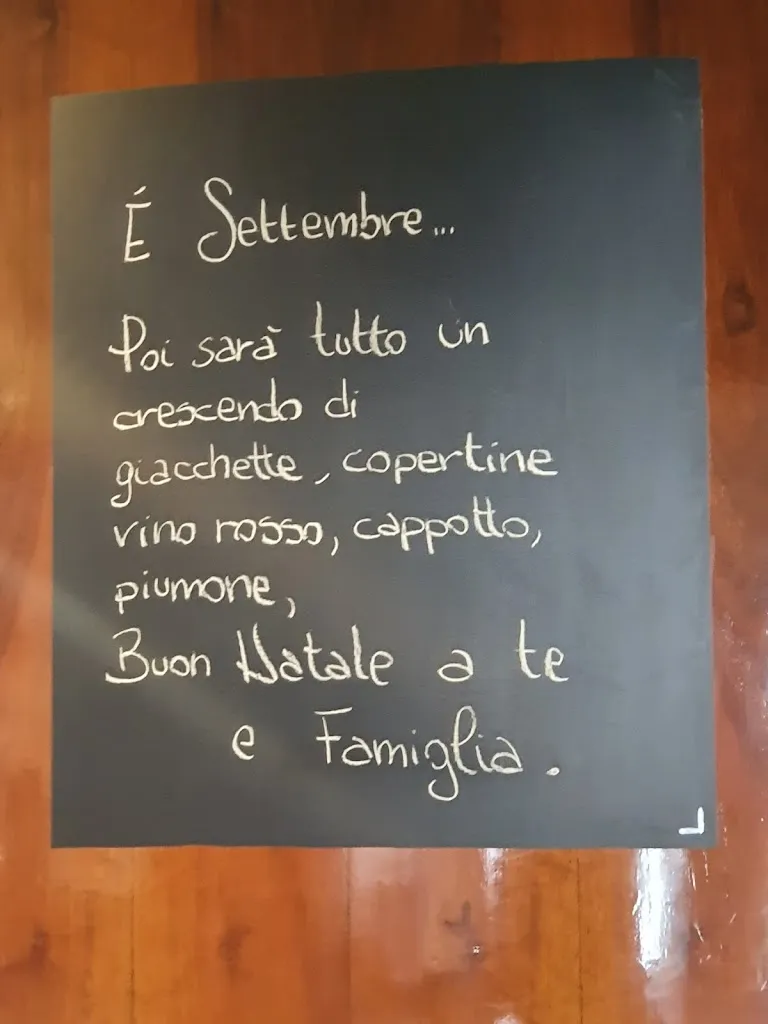 É Settembre...
Poi sarà tutto un
crescendo di
giacchette, copertine
vino rosso, cappotto,
piumone,
Buon Natale a te
e Famiglia.